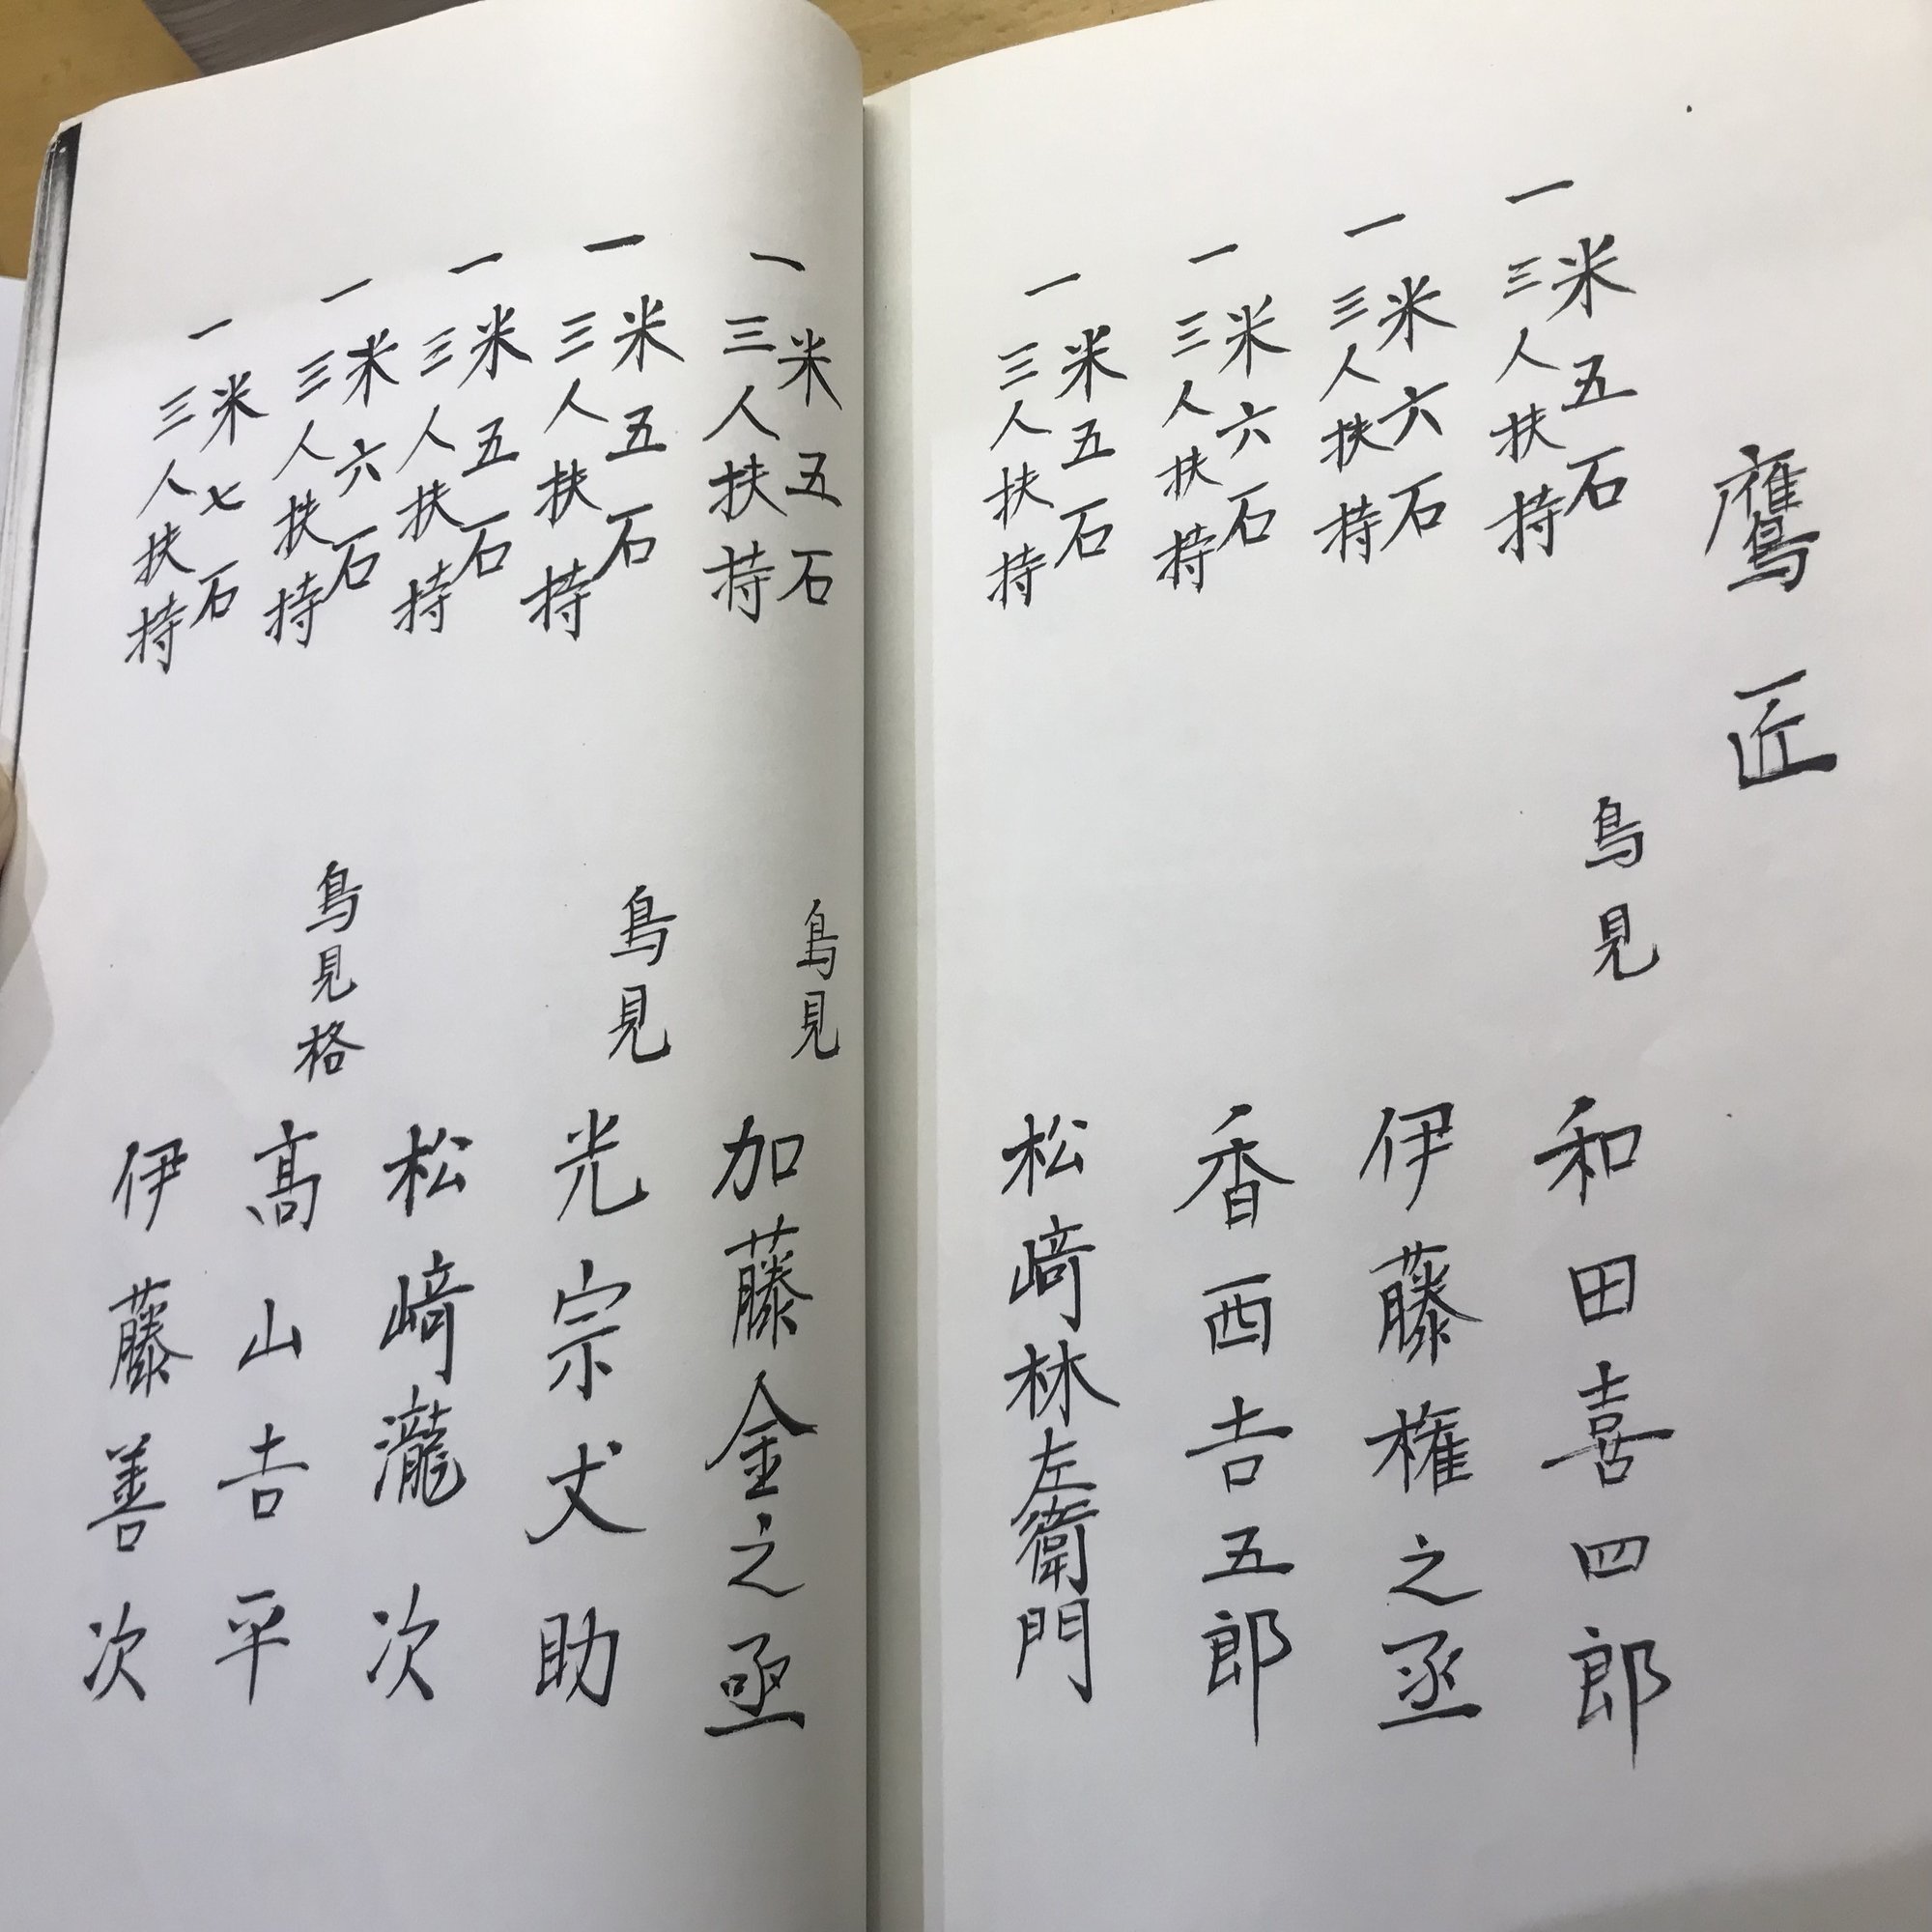 鷹匠
一米五石
三人扶持
鳥見
和田喜四郎
一米六石
三人扶持
伊藤権之丞
一米六石
三人扶持
香西吉五郎
一米五石
三人扶持
松﨑林左衛門
一米五石
三人扶持
鳥見
加藤金之亟
一米五石
三人扶持
鳥見
光宗丈助
一米五石
三人扶持
松﨑瀧次
一米六石
三人扶持
鳥見格
髙山吉平
一米七石
三人扶持
伊藤善次